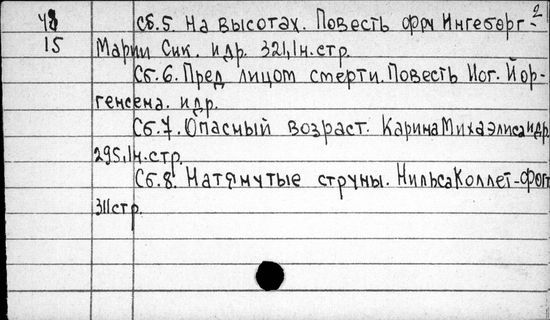 2
48 Сб. 5. На высотах. Повесть фру Ингеборг-
15 Марии Сик. и др. 321,1н.стр.
Сб. 6. Пред лицом смерти. Повесть Иог. Йор-
генсена. и др.
Сб. 7. Опасный возраст. Карина Михаэлиса и др.
295,1н.стр.
Сб. 8. Натянутые струны. Нильса Коллет-Фогт
311 стр.